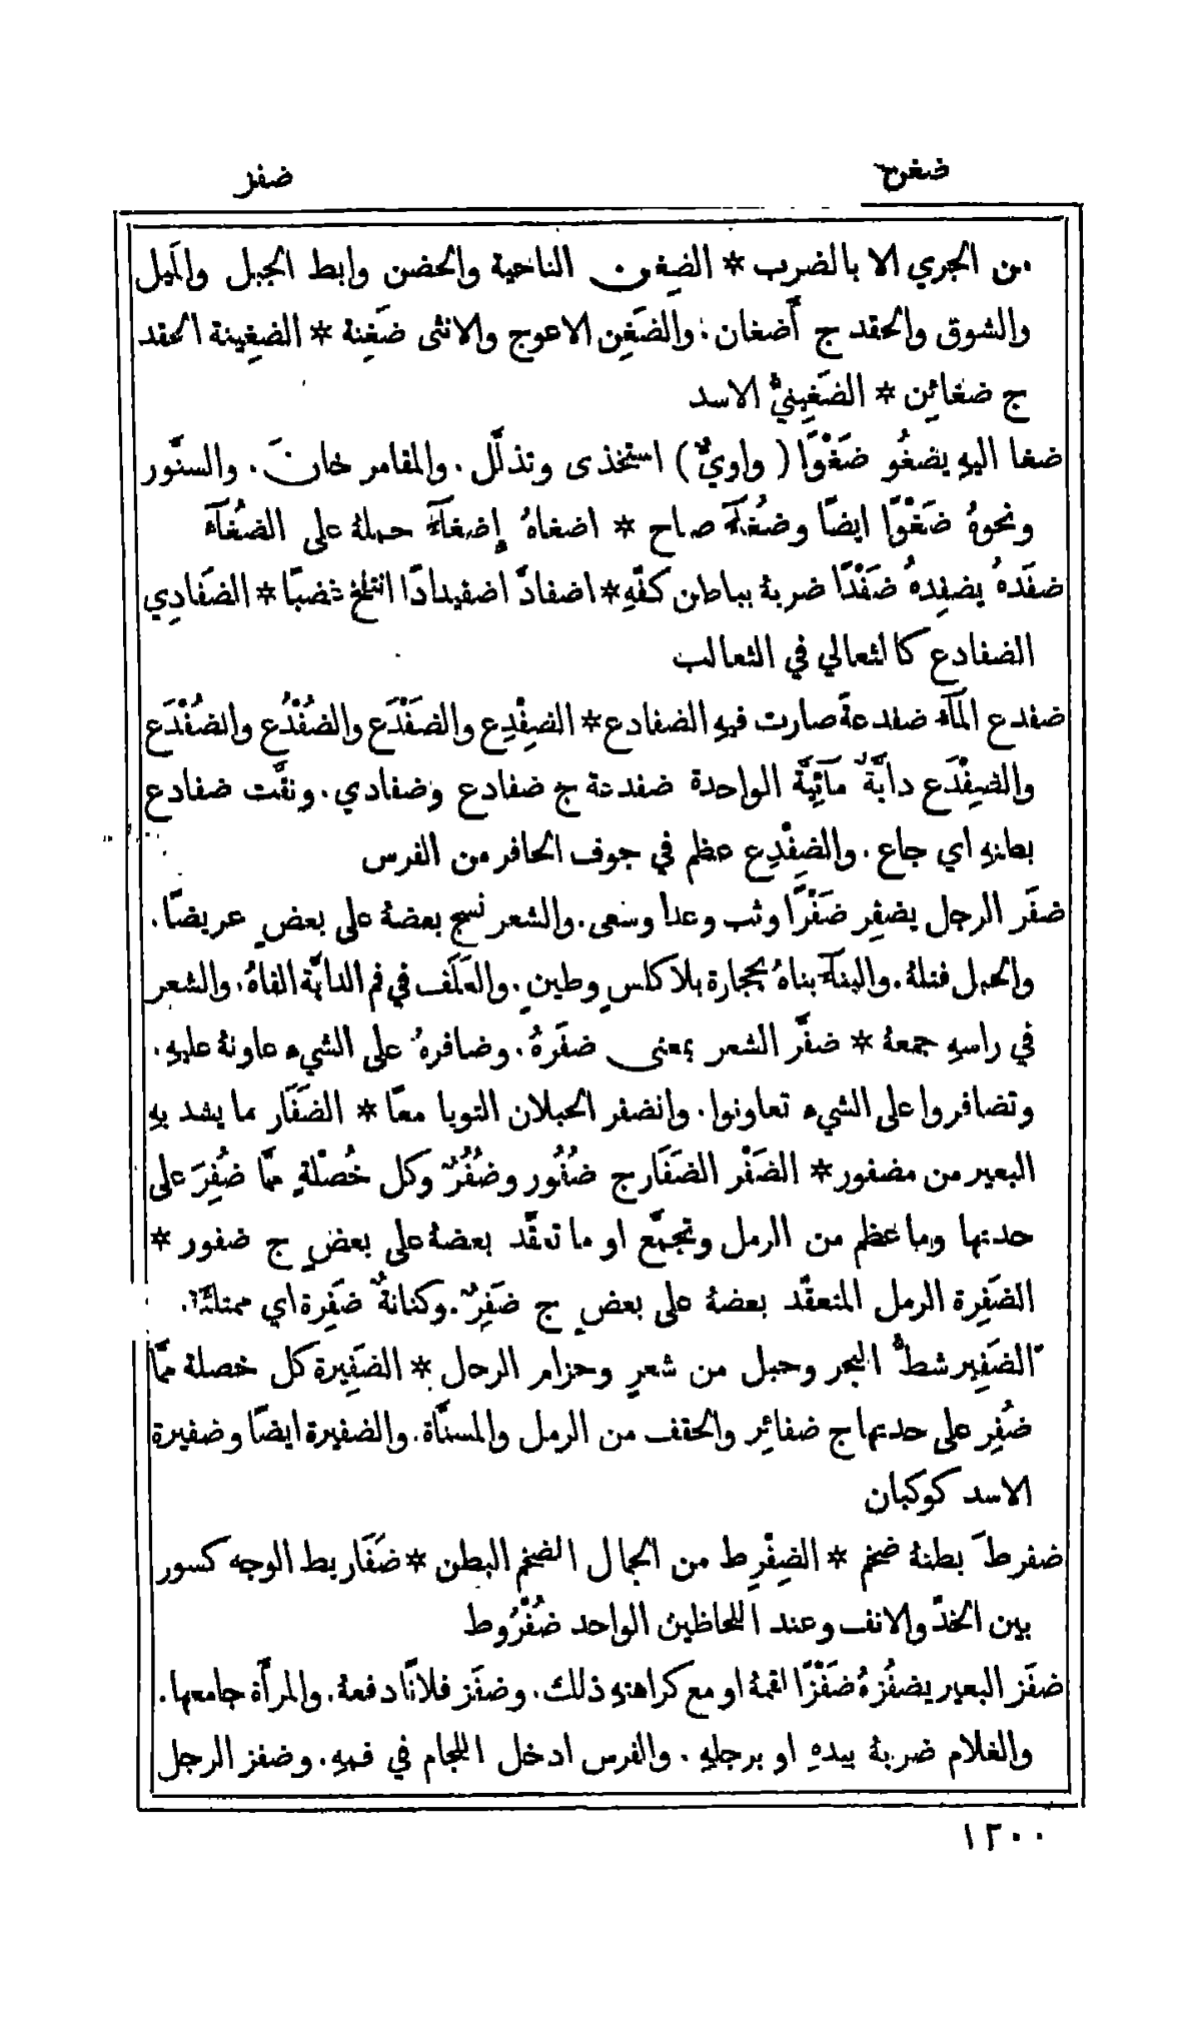 ضغن
ضفر
من الجري الا بالضرب * الضِغن الناحية والحضن وابط الجبل والمَيل
والشوق والحقد ج أَضغان. والضَغِن الاعوج والانثى ضَغِنة * الضغِينة الحقد
ج ضغائِن * الضَغِينيُّ الاسد
ضغا اليهِ يضغُو ضَغْوًا (واويٌّ) استخذى وتذلَّل. والمقامر خانَ. والسنَّور
ونحوهُ ضَغْوًا ايضًا وضُغآءً صاح * اضغاهُ إِضغآءً حملهُ على الضُغآء
ضفَدهُ يضفِدهُ ضَفْدًا ضربهُ بباطن كفّهِ * اضفادَّ اضفيدادًا انتفخ غضبًا * الضَفادِي
الضفادع كالثعالي في الثعالب
ضفدع المآء ضفدعةً صارت فيهِ الضفادع * الضِفْدِع والضَفْدَع والضُفْدُع والضُفْدَع
والضِفْدَع دابَّةٌ مآئِيَّة الواحدة ضفدعة ج ضفادع وضفادي. ونقَّت ضفادع
بطنهِ اي جاع. والضِفْدِع عظم في جوف الحافر من الفرس
ضفَر الرجل يضفِر ضَفْرًا وثب وعدا وسعى. والشعر نسج بعضهُ على بعضٍ عريضًا.
والحبل فتلهُ. والبنآء بناهُ بحجارة بلا كلسٍ وطينٍ. والعَلَف في فم الدابَّة القاهُ. والشعر
في راسهِ جمعهُ * ضفَّر الشعر بمعنى ضفَرهُ. وضافرهُ على الشيء عاونهُ عليهِ.
وتضافروا على الشيء تعاونوا. وانضفر الحبلان التويا معًا * الضَفَار ما يشد بهِ
البعير من مضفور * الضَفْر الضَفَار ج ضُفُور وضُفُرٌ وكل خُصْلةٍ ممَّا ضُفِرَ على
حدتها وما عظم من الرمل وتجمَّع او ما تعقَّد بعضهُ على بعضٍ ج ضفور *
الضَفِرة الرمل المتعقّد بعضهُ على بعضٍ ج ضَفِرٌ. وكنانةٌ ضَفِرة اي ممتلئة.
الضَفِير شطُّ البحر وحبل من شعرٍ وحزام الرحل * الضَفِيرة كل خصلة ممَّا
ضُفِر على حدتها ج ضفائِر والحقف من الرمل والمسنَّاة. والضفيرة ايضًا وضفيرة
الاسد كوكبان
ضفرطَ بطنهُ ضخم * الضِفْرِط من الجمال الضخم البطن * ضَفَاريط الوجه كسور
بين الخدّ والانف وعند اللحاظين الواحد ضُفْرُوط
ضفَز البعير يضفُزهُ ضَفْزًا لقمهُ او مع كراهتهِ ذلك. وضفَز فلانًا دفعهُ. والمرأَة جامعها.
والغلام ضربهُ بيدهِ او برجلهِ. والفرس ادخل اللجام في فمهِ. وضفز الرجل
١٢٠٠